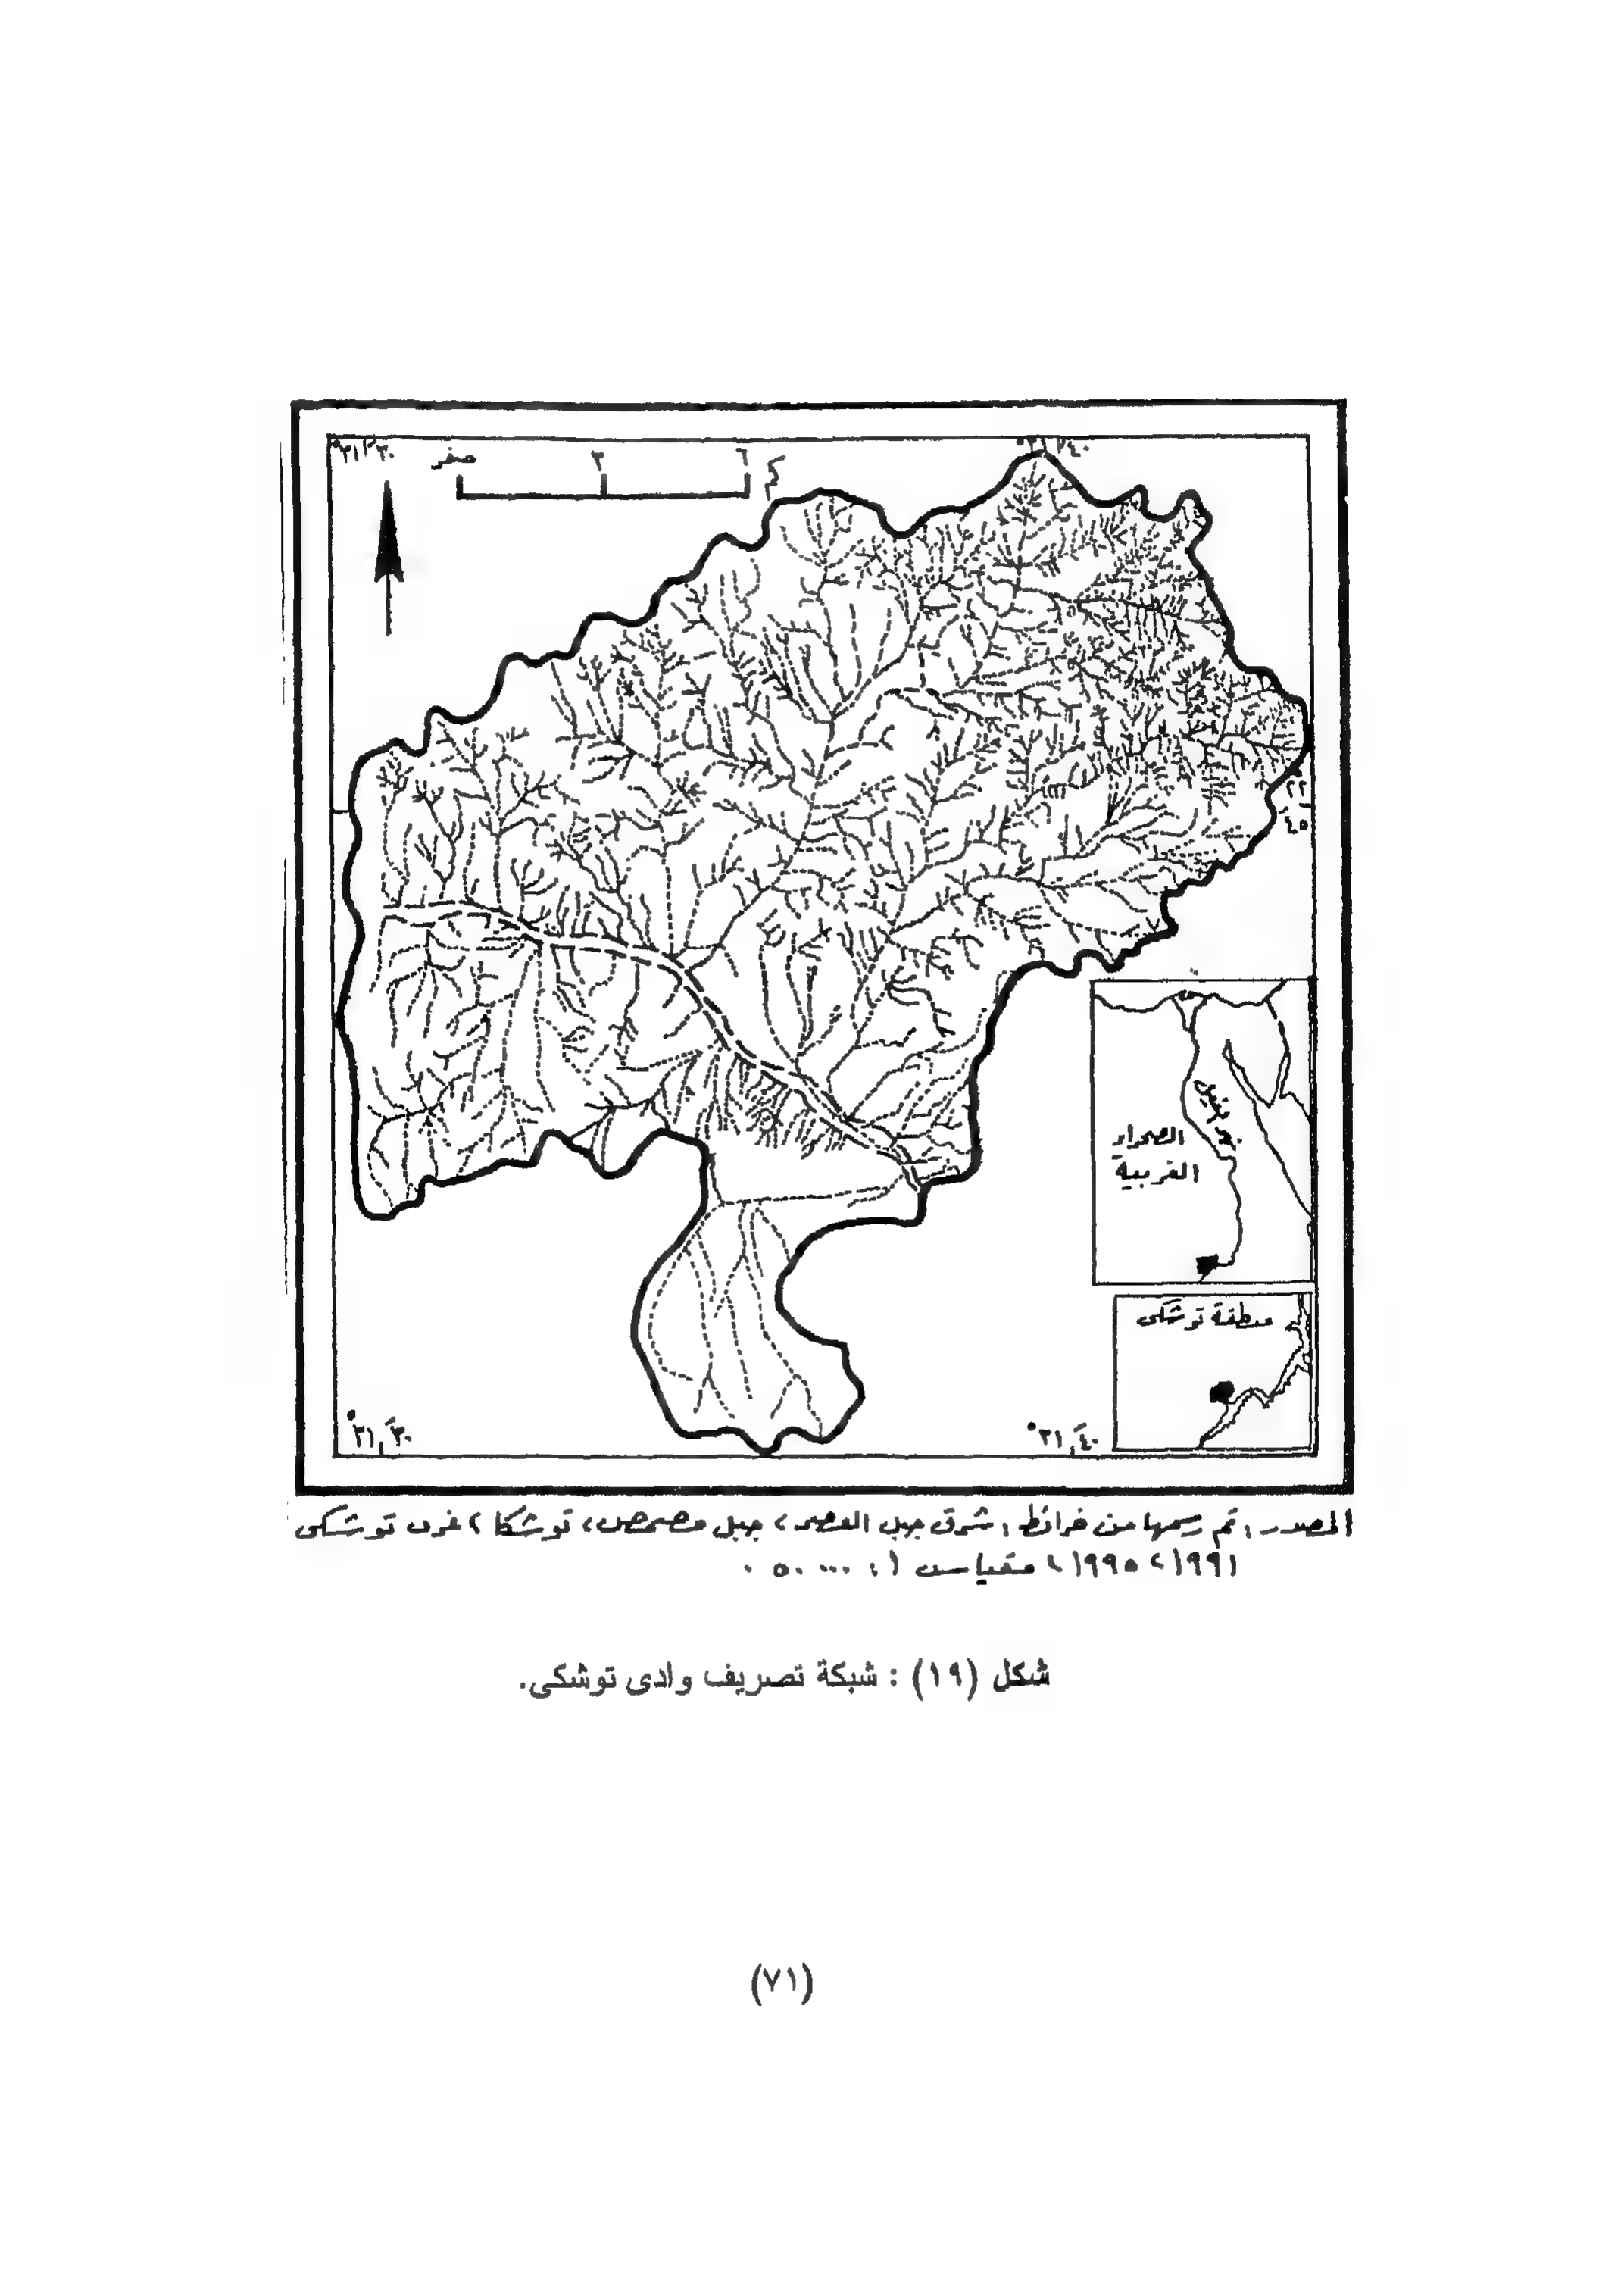 ٣١ ٣٠°
صفر ٣ ٦ كم
٣١ ٤٠°
٢٢
٤٥
بحر النيل
الصحراء
الغربية
منطقة توشكى
٣١ ٣٠°
٣١ ٤٠°
المصدر: تم رسمها من خرائط: شرق جبل العصر، جبل مصمص، توشكا، غرب توشكى
١٩٩١، ١٩٩٥، مقياس ١: ٥٠٠٠٠.
شكل (١٩) : شبكة تصريف وادى توشكى.
(٧١)